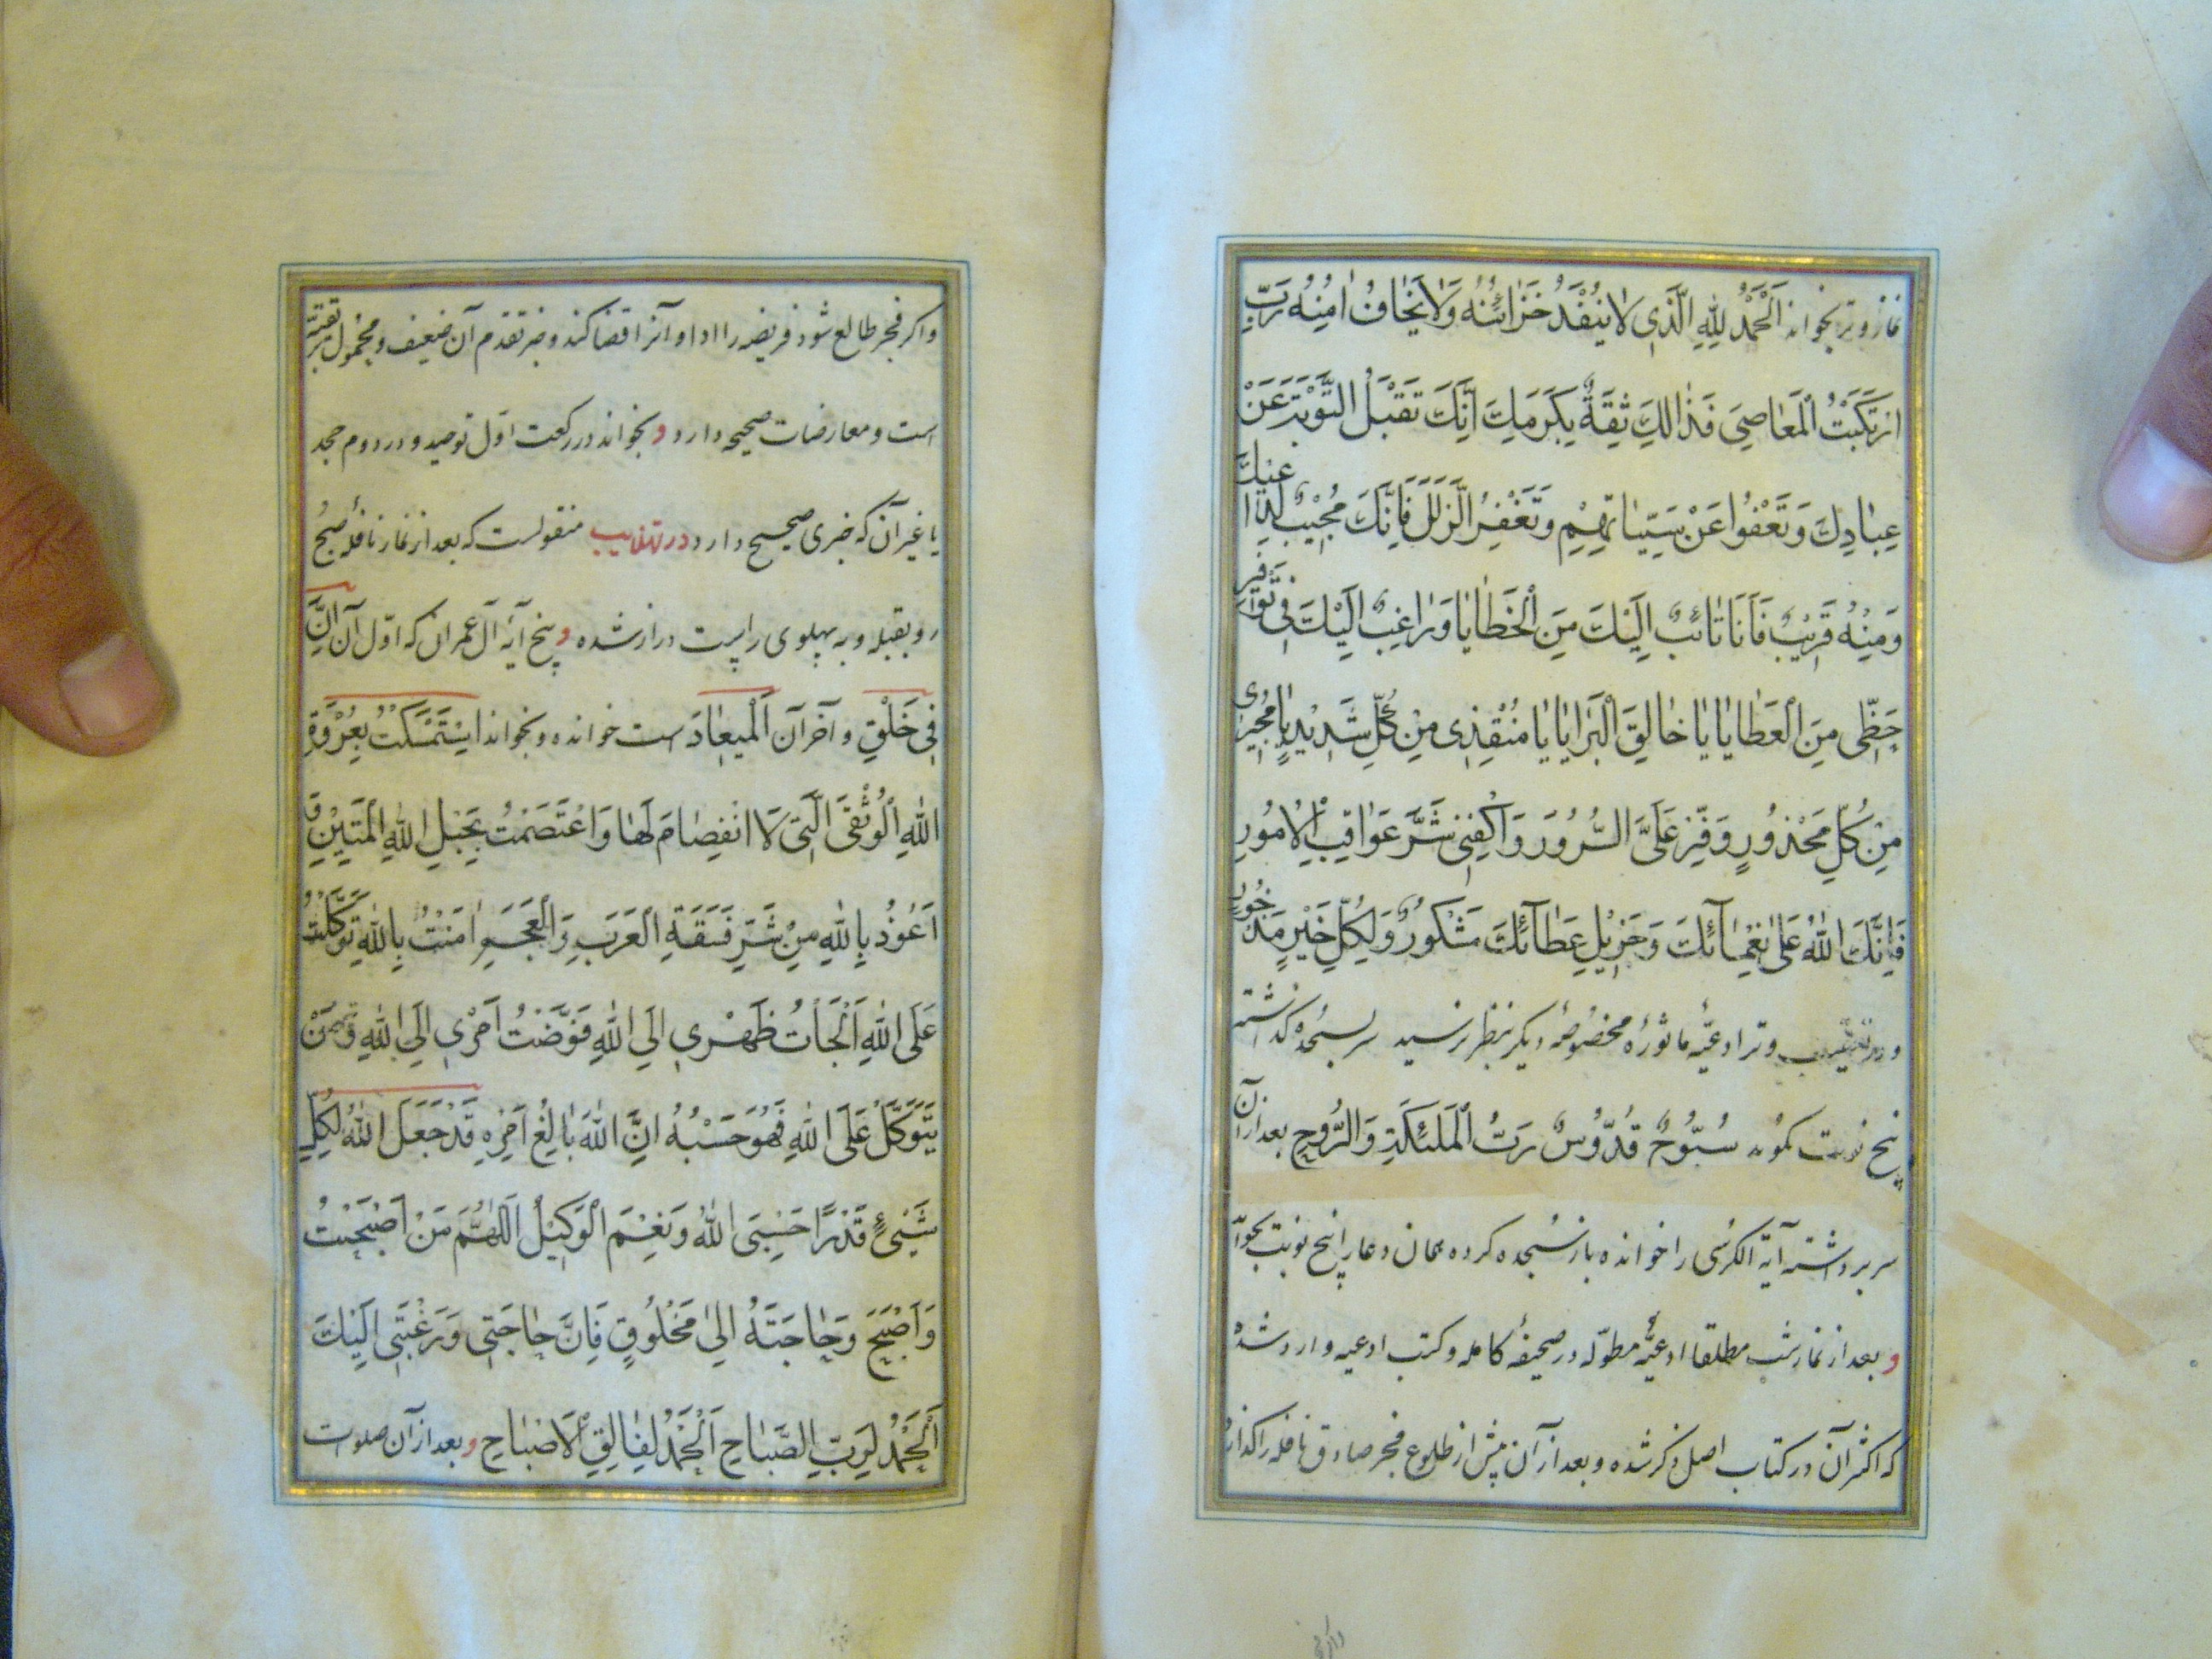 نماز وتر بخواند اَلْحَمْدُ لِلّٰهِ الَّذِی لَا یَنْفَدُ خَزَائِنُهُ وَلَا یَخَافُ اٰمِنُهُ رَبِّ
ارْتَكَبْتُ الْمَعَاصِیَ فَذَالِكَ ثِقَةٌ بِكَرَمِكَ اِنَّكَ تَقْبَلُ التَّوْبَةَ عَنْ
عِبَادِكَ وَتَعْفُوا عَنْ سَیِّئَاتِهِمْ وَتَغْفِرُ الزَّلَلَ فَاِنَّكَ مُجِیْبٌ لِدَاعِیْكَ
وَمِنْهُ قَرِیْبٌ فَاَنَا تَائِبٌ اِلَیْكَ مِنَ الْخَطَایَا وَرَاغِبٌ اِلَیْكَ فِی تَوْفِیرِ
حَظِّی مِنَ الْعَطَایَا یَا خَالِقَ الْبَرَایَا یَا مُنْقِذِی مِنْ كُلِّ شَدِیْدٍ یَا مُجِیْرِی
مِنْ كُلِّ مَحْذُورٍ وَفِّرْ عَلَیَّ السُّرُورَ وَاكْفِنِی شَرَّ عَوَاقِبِ الْاُمُورِ
فَاِنَّكَ اللّٰهُ عَلٰی نَعْمَائِكَ وَجَزِیْلِ عَطَائِكَ مَشْكُورٌ وَلِكُلِّ خَیْرٍ مَذْخُورٌ
و در تعقیب وتر ادعیّه ماثورهٔ مخصوصه دیگر بنظر نرسید سر بسجده گذاشته
پنج نوبت گوید سُبُّوحٌ قُدُّوسٌ رَبُّ الْمَلٰئِكَةِ وَالرُّوحِ بعد از آن
سر برداشته آیة الکرسی را خوانده باز سجده کرده همان دعا را پنج نوبت بخواند
و بعد از نماز شب مطلقا ادعیّهٔ مطوّله در صحیفهٔ کامله و کتب ادعیه وارد شده
که اکثر آن در کتاب اصل ذکر شده و بعد از آن پیش از طلوع فجر صادق نافله را گذارد
و اکر فجر طالع شود فریضه را ادا و آنرا قضا کند و خبر تقدم آن ضعیف و محمول بر تقیّه
است و معارضات صحیحه دارد و بخواند در رکعت اوّل توحید و در دوم جحد
یا غیر آن که خبری صحیح دارد در تهذیب منقولست که بعد از نماز نافلهٔ صبح
رو بقبله و به پهلوی راست دراز شده و پنج آیهٔ آل عمران که اوّل آن اِنَّ
فِی خَلْقِ و آخر آن اَلْمِیعَادَ است خوانده و بخواند اِسْتَمْسَكْتُ بِعُرْوَةِ
اللّٰهِ الْوُثْقَی الَّتِی لَا انْفِصَامَ لَهَا وَاعْتَصَمْتُ بِحَبْلِ اللّٰهِ الْمَتِیْنِ وَ
اَعُوْذُ بِاللّٰهِ مِنْ شَرِّ فَسَقَةِ الْعَرَبِ وَالْعَجَمِ اٰمَنْتُ بِاللّٰهِ تَوَكَّلْتُ
عَلَی اللّٰهِ اَلْجَأْتُ ظَهْرِی اِلَی اللّٰهِ فَوَّضْتُ اَمْرِی اِلَی اللّٰهِ وَمَنْ
یَتَوَكَّلْ عَلَی اللّٰهِ فَهُوَ حَسْبُهُ اِنَّ اللّٰهَ بَالِغُ اَمْرِهِ قَدْ جَعَلَ اللّٰهُ لِكُلِّ
شَیْئٍ قَدْرًا حَسْبِیَ اللّٰهُ وَنِعْمَ الْوَكِیْلُ اَللّٰهُمَّ مَنْ اَصْبَحْتُ
وَاَصْبَحَ وَحَاجَتَهُ اِلٰی مَخْلُوقٍ فَاِنَّ حَاجَتِی وَرَغْبَتِی اِلَیْكَ
اَلْحَمْدُ لِرَبِّ الصَّبَاحِ اَلْحَمْدُ لِفَالِقِ الْاَصْبَاحِ و بعد از آن صلوات